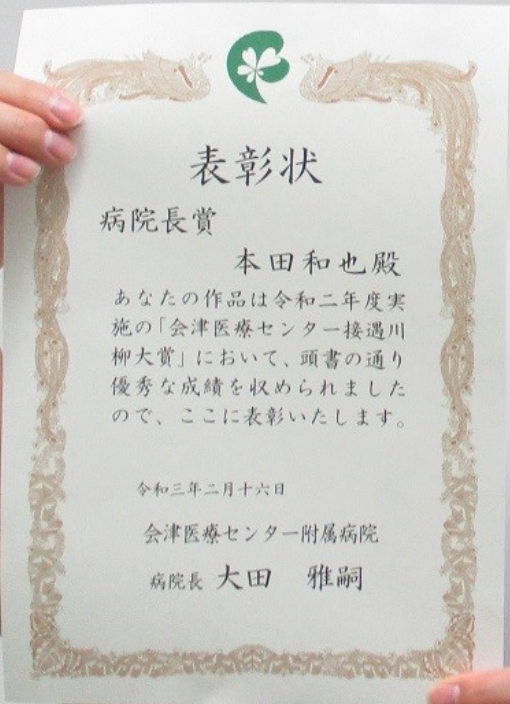 表彰状
病院長賞
本田和也殿
あなたの作品は令和二年度実
施の「会津医療センター接遇川
柳大賞」において、頭書の通り
優秀な成績を収められました
ので、ここに表彰いたします。
令和三年二月十六日
会津医療センター附属病院
病院長 大田 雅嗣